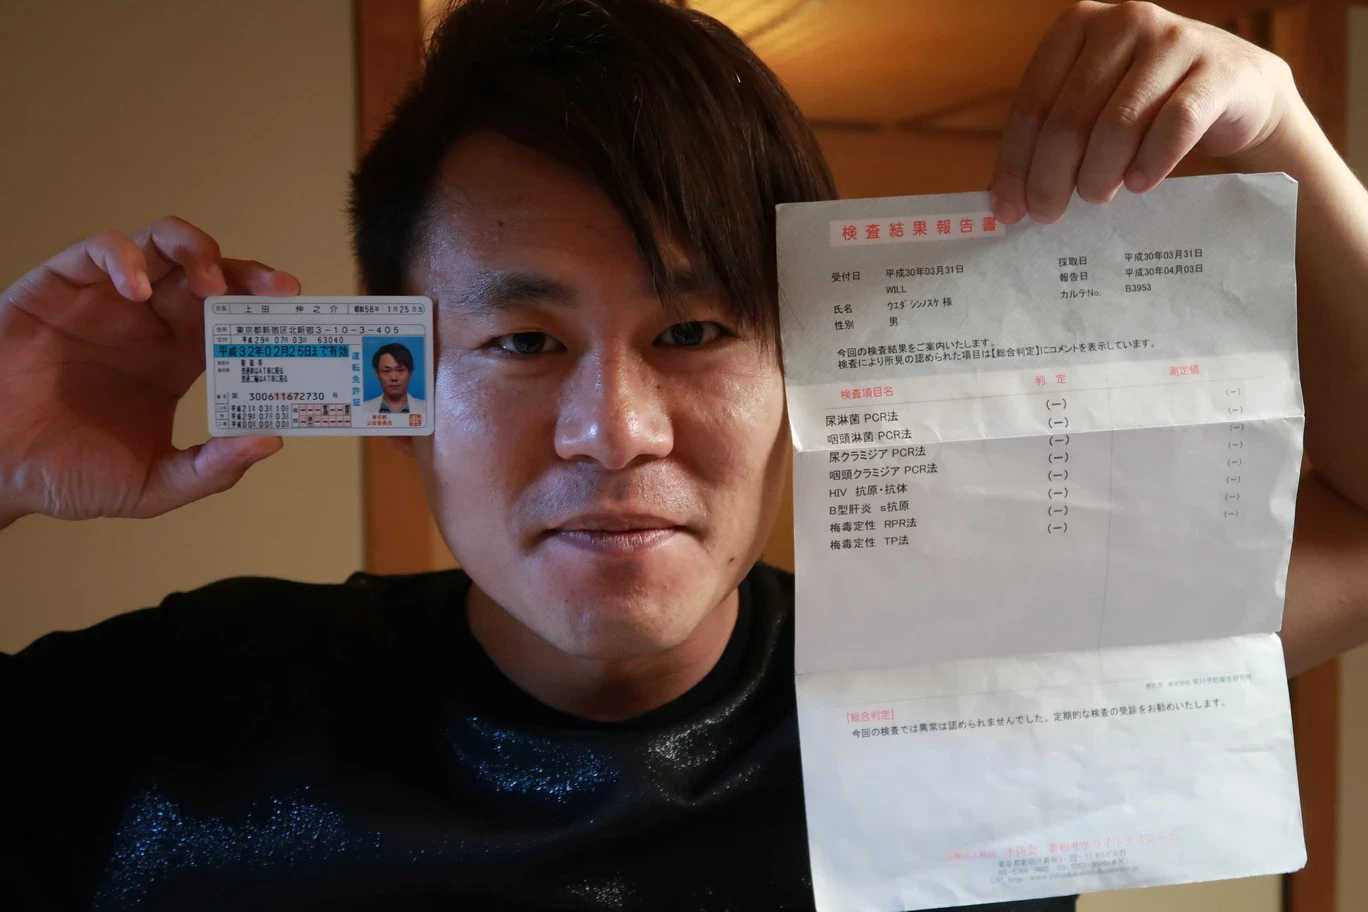 氏名 上田 伸之介 昭和58年 1月25日生
住所 東京都新宿区北新宿3-10-3-405
交付 平成29年07月03日 63040
平成32年02月25日まで有効
運転免許証
番号 第 300611672730 号
平成21年03月10日
平成29年07月03日
平成00年00月00日
東京都
公安委員会
検査結果報告書
受付日 平成30年03月31日 採取日 平成30年03月31日
WILL 報告日 平成30年04月03日
氏名 ウエダ シンノスケ 様 カルテNo. B3953
性別 男
今回の検査結果をご案内いたします。
検査により所見の認められた項目は【総合判定】にコメントを表示しています。
検査項目名 判定 測定値
尿淋菌 PCR法 (-) (-)
咽頭淋菌 PCR法 (-) (-)
尿クラミジア PCR法 (-) (-)
咽頭クラミジア PCR法 (-) (-)
HIV 抗原・抗体 (-) (-)
B型肝炎 s抗原 (-) (-)
梅毒定性 RPR法 (-) (-)
梅毒定性 TP法 (-)
[総合判定]
今回の検査では異常は認められませんでした。定期的な検査の受診をお勧めいたします。
予防会 新宿サテライトクリニック